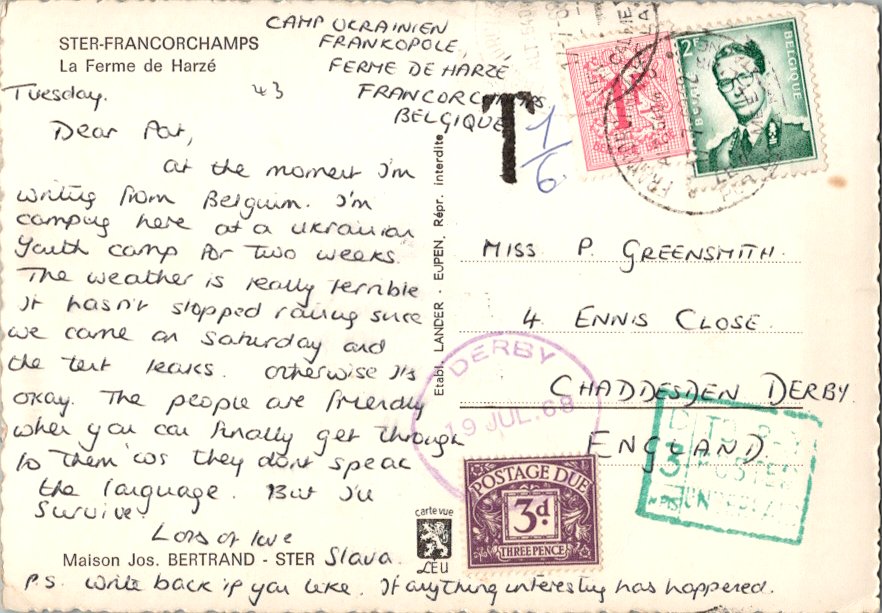 STER-FRANCORCHAMPS
La Ferme de Harzé
CAMP UKRAINIEN
FRANKOPOLE,
FERME DE HARZÉ
FRANCORCHAMPS
BELGIQUE
Tuesday.
Dear Pat,
at the moment I'm
writing from Belgium. I'm
camping here at a Ukrainian
Youth camp for two weeks.
The weather is really terrible
it hasn't stopped raining since
we came on Saturday and
the tent leaks. Otherwise its
okay. The people are friendly
when you can finally get through
to them 'cos they dont speak
the language. But I'll
survive.
Lots of love
Slava.
P.S. Write back if you like. If anything interesting has happened.
Maison Jos. BERTRAND - STER
Etabl. LANDER - EUPEN, Répr. interdite
carte vue
LÉU
T
1/6.
1F
2F
BELGIQUE
MISS P. GREENSMITH.
4 ENNIS CLOSE.
CHADDESDEN DERBY.
ENGLAND
DERBY
19 JUL. 68
POSTAGE DUE
3d.
THREE PENCE
3